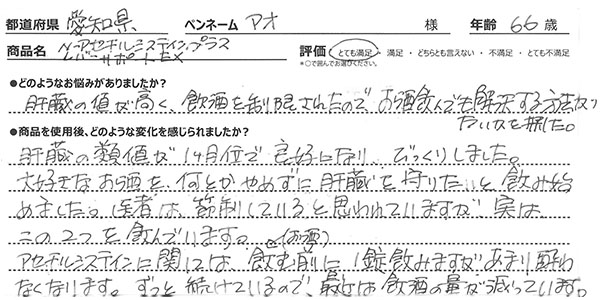 都道府県 愛知県 ペンネーム アオ 様 年齢 66 歳
商品名 N-アセチルシステインプラス
レバーサポートEX
評価 とても満足 ・ 満足 ・ どちらとも言えない ・ 不満足 ・ とても不満足
*○で囲んでお選びください。
●どのようなお悩みがありましたか?
肝蔵の値が高く、飲酒を制限されたのでお酒飲んでも解決する方法が
ないかを探した。
●商品を使用後、どのような変化を感じられましたか?
肝蔵の類値が1ヶ月位で良好になり、びっくりしました。
大好きなお酒を何とかやめずに肝蔵を守りたいと飲み始
めました。医者は、節制していると思われていますが実は
この2つを飲んでいます。(お酒)
アセチルシステインに関しては、飲む前に1錠飲みますがあまり酔わ
なくなります。ずっと続けているので、最近は飲酒の量が減っています。